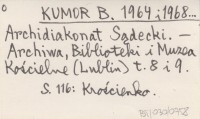 KUMOR B. 1964 i 1968...
Archidiakonat Sądecki. —
Archiwa, Biblioteki i Muzea
Kościelne (Lublin) t. 8 i 9.
S. 116: Krościenko.